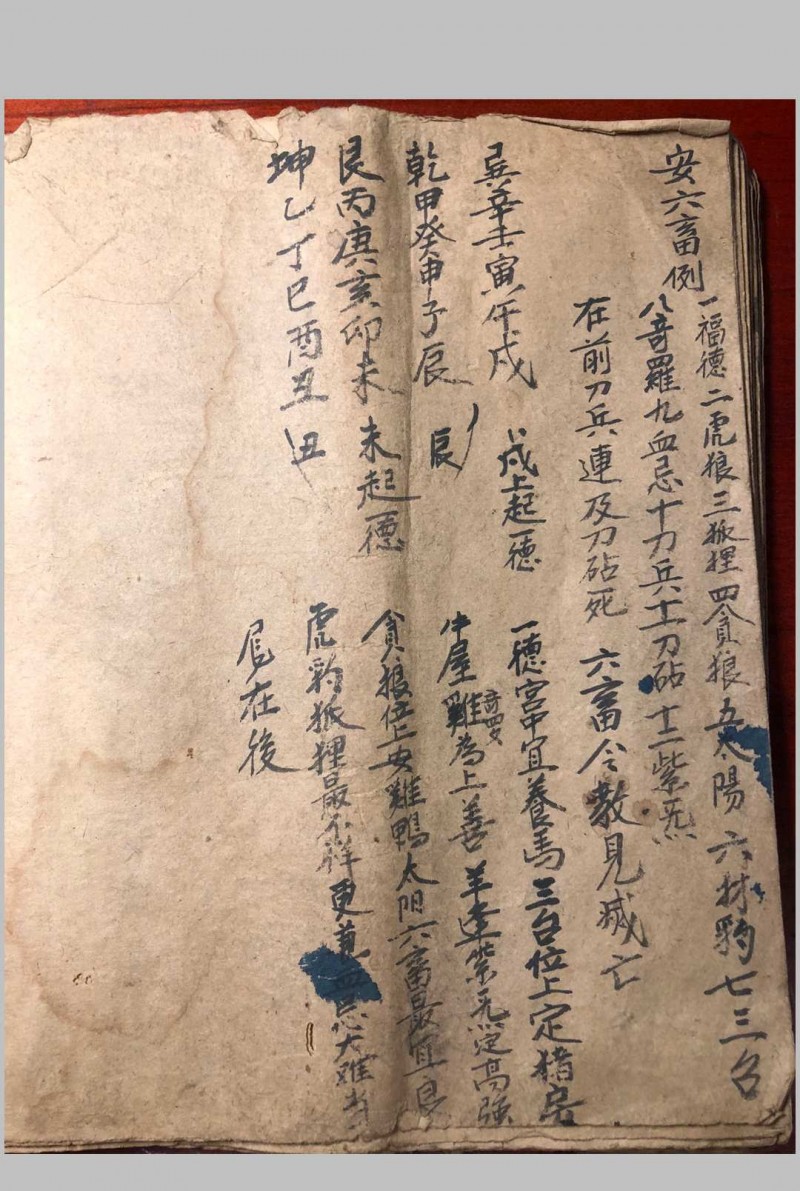 安六畜例
一福德二虎狼三狐狸四貪狼五太陽六才豹七三台
八奇羅九血忌十刀兵十一刀砧十二紫炁
在前刀兵連及刀砧死 六畜令教見滅亡
巽辛壬寅午戌 戌上起一德 一德宮中宜養馬三台位上定猪房
乾甲癸申子辰 辰 牛屋奇羅雞為上善羊逢紫炁定高強
艮丙庚亥卯未 未起一德 貪狼位上安雞鴨太阳六畜最宜良
坤乙丁巳酉丑 丑 虎豹狐狸最不祥更兼血忌大難
在後